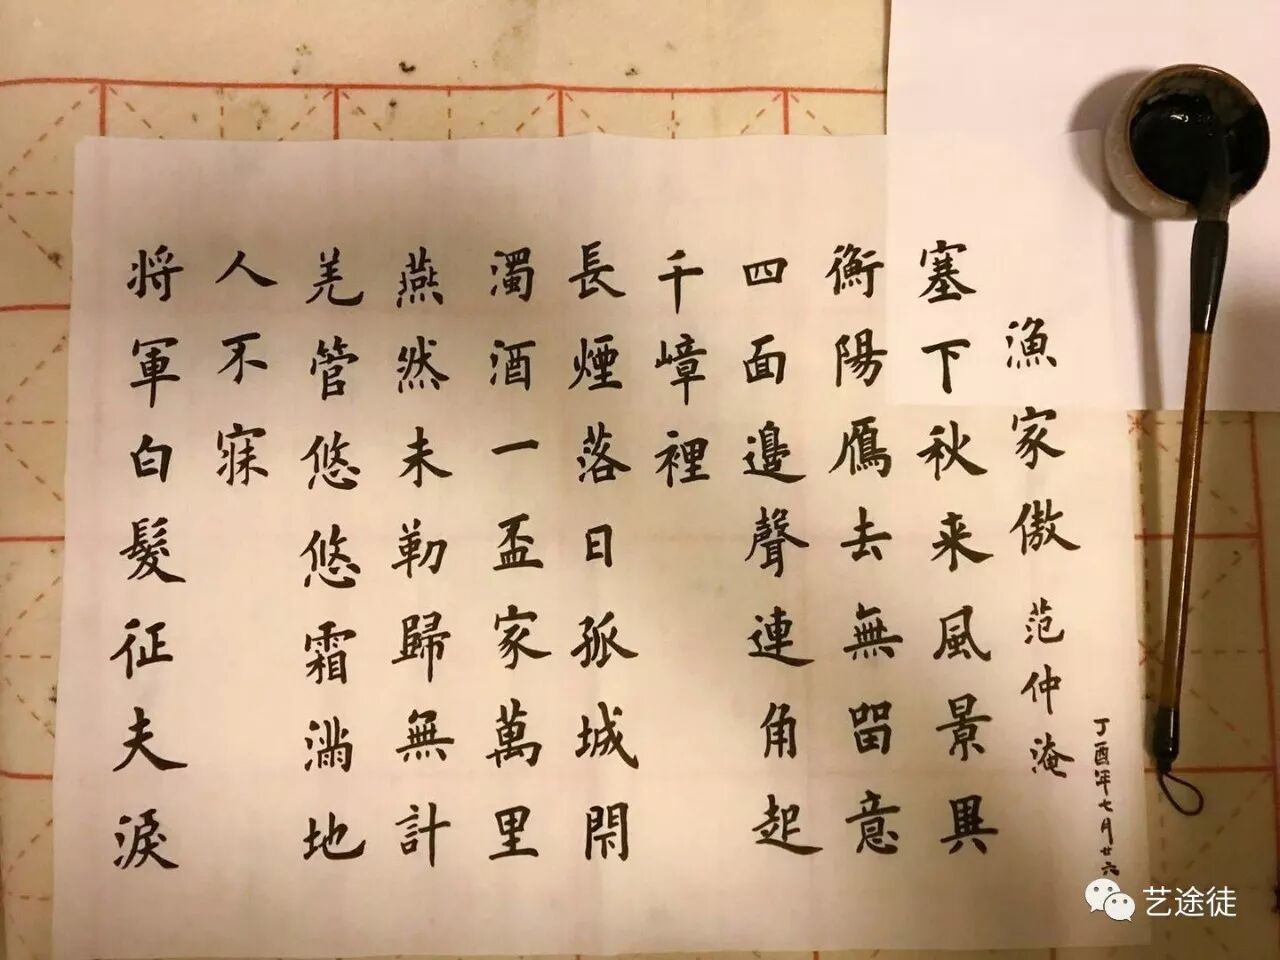 丁酉年七月廿六
漁家傲 范仲淹
塞下秋来風景異
衡陽鴈去無留意
四面邊聲連角起
千嶂裡
長煙落日孤城閇
濁酒一盃家萬里
燕然未勒歸無計
羌管悠悠霜滿地
人不寐
将軍白髮征夫淚
艺途徒